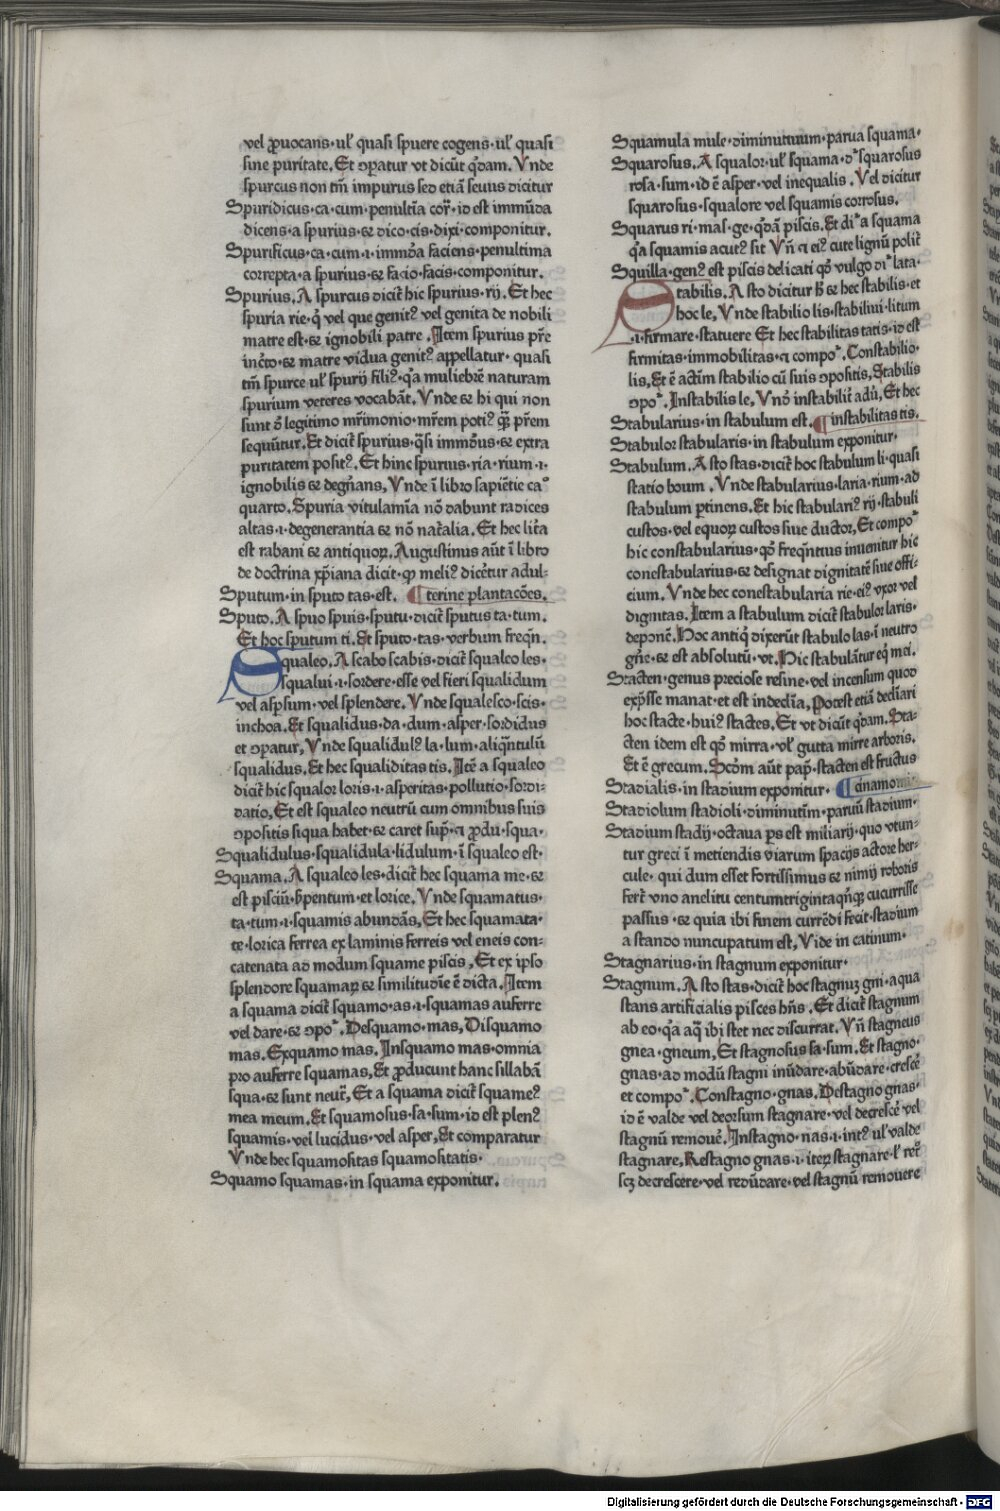 vel ꝓuocans·ul' quasi spuere cogens·ul' quasi
sine puritate. Et ꝯparatur vt dicūt q̇dam. Vnde
spurcus non tm̄ impurus sed etiā seuus dicitur
Spuridicus·ca·cum·penultīa cor̄·id est immūda
dicens·a spurius·et dico·cis·dixi·componitur.
Spurificus·ca·cum·i·immōa faciens·penultima
correpta·a spurius·et facio·facis·componitur.
Spurius, A spurcus dicit̄ hic spurius·rij. Et hec
spuria rie·q̇ vel que genitꝰ vel genita de nobili
matre est·et ignobili patre. Item spurius pr̄e
inct̄o·et matre vidua genitꝰ appellatur·quasi
tm̄ spurce ul' spurij filiꝰ·q̇a muliebrē naturam
spurium veteres vocabāt. Vnde et hi qui non
sunt d̄ legitimo mr̄imonio·mr̄em potiꝰ q̄ȝ pr̄em
sequūtur. Et dicit̄ spurius·q̇si immōus·et extra
puritatem positꝰ. Et hinc spurius·ria·rium·i·
ignobilis et degn̄ans, Vnde ī libro sapiētie ca°
quarto. Spuria vitulamīa nō dabunt radices
altas·i·degenerantia et nō nat̄alia. Et hec lit̄a
est rabani et antiquoꝝ. Augustinus aūt ī libro
de doctrina xp̄iana dicit·ꝙ meliꝰ dicet̄ur adul-
Sputum·in sputo tas·est. ¶ terine plantacōes.
Sputo. A spuo spuis·sputu·dicit̄ sputus ta·tum.
Et hoc sputum ti. Et sputo·tas·verbum freqn̄.
Squaleo. A scabo scabis·dicit̄ squaleo les·
squalui·i·sordere·esse vel fieri squalidum
vel asp̄sum·vel splendere. Vnde squalesco·scis·
inchoa. Et squalidus·da·dum·asper·sordidus
et ꝯparatur, Vnde squalidulꝰ la·lum·aliqn̄tulū
squalidus. Et hec squaliditas tis. Itē a squaleo
dicit̄ hic squalor loris·i·asperitas·pollutio·sordi-
datio, Et est squaleo neutrū cum omnibus suis
ꝯpositis siqua habet·et caret sup̄·et ꝓdu·squa·
Squalidulus·squalidula·lidulum·ī squaleo est·
Squama. A squaleo les·dicit̄ hec squama me·et
est pisciū·serpentum·et lorice, Vnde squamatus·
ta·tum·i·squamis abundās, Et hec squamata·
te·lorica ferrea ex laminis ferreis vel eneis con-
catenata ad modum squame piscis, Et ex ipso
splendore squamaꝝ et similitudīe ē dicta. Item
a squama dicit̄ squamo·as·i·squamas auferre
vel dare·et ꝯpo°. Desquamo·mas, Disquamo
mas. Exquamo mas. Insquamo mas·omnia
pro auferre squamas, Et ꝓducunt hanc sillabā
squa·et sunt neut̄, Et a squama dicit̄ squameꝰ
mea meum. Et squamosus·sa·sum·id est plenꝰ
squamis·vel lucidus·vel asper, Et comparatur
Vnde hec squamositas squamositatis·
Squamo squamas·in squama exponitur.
Squamula mule·diminutiuum·parua squama·
Squarosus. A squalor·ul' squama·d° squarosus
rosa·sum·id ē asper·vel inequalis. Vel dicitur
squarosus·squalore vel squamis corrosus.
Squarus ri·mas·ge·q̇dā piscis. Et di° a squama
q̇a squamis acutꝰ sit Vn̄ et eiꝰ cute lignū polit̄
Squilla·genꝰ est piscis delicati qd̄ vulgo di° lata·
Stabilis. A sto dicitur h̄ et hec stabilis·et
hoc le, Vnde stabilio lis·stabiliui·litum
·i·firmare·statuere Et hec stabilitas tatis·id est
firmitas·immobilitas·et compo°. Constabilio·
lis, Et ē actīm stabilio cū suis ꝯpositis, Stabilis
ꝯpo°. Instabilis le, Vnd̄ instabilit̄ adū, Et hec
Stabularius·in stabulum est. ¶ instabilitas tis.
Stabulor stabularis·in stabulum exponitur·
Stabulum. A sto stas·dicit̄ hoc stabulum li·quasi
statio boum. Vnde stabularius·laria·rium·ad
stabulum ꝑtinens. Et hic stabulariꝰ rij·stabuli
custos·vel equoꝝ custos siue ductor, Et compo°
hic constabularius·qd̄ freqn̄tius inuenitur hic
conestabularius·et designat dignitatē siue offi-
cium. Vnde hec conestabularia rie·eiꝰ vxor vel
dignitas. Item a stabulum dicit̄ stabulor laris·
deponē. Hoc antiq̇ dixerūt stabulo las·ī neutro
gn̄e·et est absolutū·vt. Hic stabulāntur eq̇ mei.
Stacten·genus preciose resine·vel incensum quod
exp̄sse manat·et est indeclīa, Potest etiā declīari
hoc stacte·huiꝰ stactes. Et vt dicūt q̇dam. Sta-
cten idem est qd̄ mirra·vl' gutta mirre arboris.
Et ē grecum. Scd̄m aūt pap̄·stacten est fructus
Stadialis·in stadium exponitur· ¶ cinamomi·
Stadiolum stadioli·diminutīm·paruū stadium·
Stadium stadij·octaua ꝑs est miliarij·quo vtun-
tur greci ī metiendis viarum spacijs actore her-
cule·qui dum esset fortissimus et nimij roboris
fert̄ vno anelitu centumtrigintaqn̄qȝ cucurrisse
passus·et quia ibi finem currēdi fecit·stadium
a stando nuncupatum est, Vide in catinum·
Stagnarius·in stagnum exponitur·
Stagnum. A sto stas·dicit̄ hoc stagnuȝ gni·aqua
stans artificialis pisces hn̄s. Et dicit̄ stagnum
ab eo·q̇a aq̄ ibi stet nec discurrat. Vn̄ stagneus
gnea·gneum, Et stagnosus sa·sum. Et stagno·
gnas·ad modū stagni inūdare·abūdare·crescē
et compo°. Constagno·gnas. Destagno gnas·
id ē valde vel deorsum stagnare·vel decrescē vel
stagnū remouē. Instagno·nas·i·intꝰ ul' valde
stagnare, Restagno gnas·i·iteꝝ stagnare·l' ret°
scȝ decrescere·vel redūdare·vel stagnū remouere
Digitalisierung gefördert durch die Deutsche Forschungsgemeinschaft - DFG